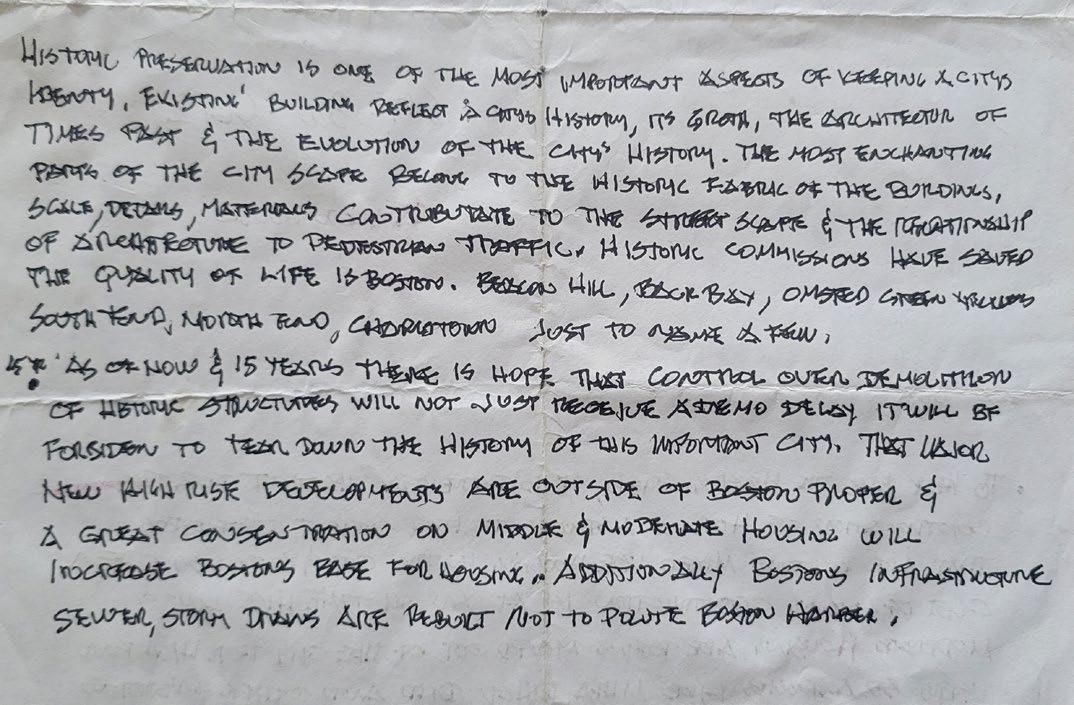 HISTORIC PRESERVATION IS ONE OF THE MOST IMPORTANT ASPECTS OF KEEPING A CITYS
IDENTY, EXISTING BUILDING REFLECT A CITYS HISTORY, ITS GROTH, THE ARCHITECTUR OF
TIMES PAST & THE EVOLUTION OF THE CITY'S HISTORY. THE MOST ENCHANTING
PARTS OF THE CITY SCAPE BELONG TO THE HISTORIC FABRIC OF THE BUILDINGS,
SCALE, DETAILS, MATERIALS CONTRIBUTATE TO THE STREET SCAPE & THE RELATIONSHIP
OF ARCHITECTURE TO PEDESTRIAN TRAFFIC. HISTORIC COMMISSIONS HAVE SAVED
THE QUALITY OF LIFE IS BOSTON. BEACON HILL, BACK BAY, OMSTED GREEN
SOUTH END, NORTH END, CHARLETOWN JUST TO NAME A FEW.
AS OF NOW & 15 YEARS THERE IS HOPE THAT CONTROL OVER DEMOLITION
OF HISTORIC STRUCTURES WILL NOT JUST RECEIVE A DEMO DELAY IT WILL BE
FORBIDEN TO TEAR DOWN THE HISTORY OF THIS IMPORTANT CITY. THAT MAJOR
NEW HIGH RISE DEVELOPMENTS ARE OUTSIDE OF BOSTON PROPER &
A GREAT CONSENTRATION ON MIDDLE & MODERATE HOUSING WILL
INCREASE BOSTONS BASE FOR HOUSING.. ADDITIONALLY BOSTONS INFRASTRUCTURE
SEWER, STORM DRAINS ARE REBUILT NOT TO POLUTE BOSTON HARBER.